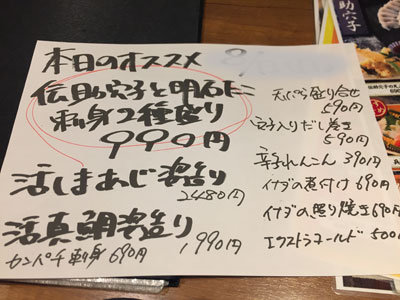 本日のオススメ
伝助穴子と明石だこ
刺身2種盛り
990円
活しまあじ姿造り
2480円
活真鯛姿造り
1,990円
カンパチ刺身 690円
天ぷら盛り合せ
590円
穴子入りだし巻き
590円
辛子れんこん 390円
イナダの煮付け 690円
イナダの照り焼き 690円
エクストラコールド 500
助穴子